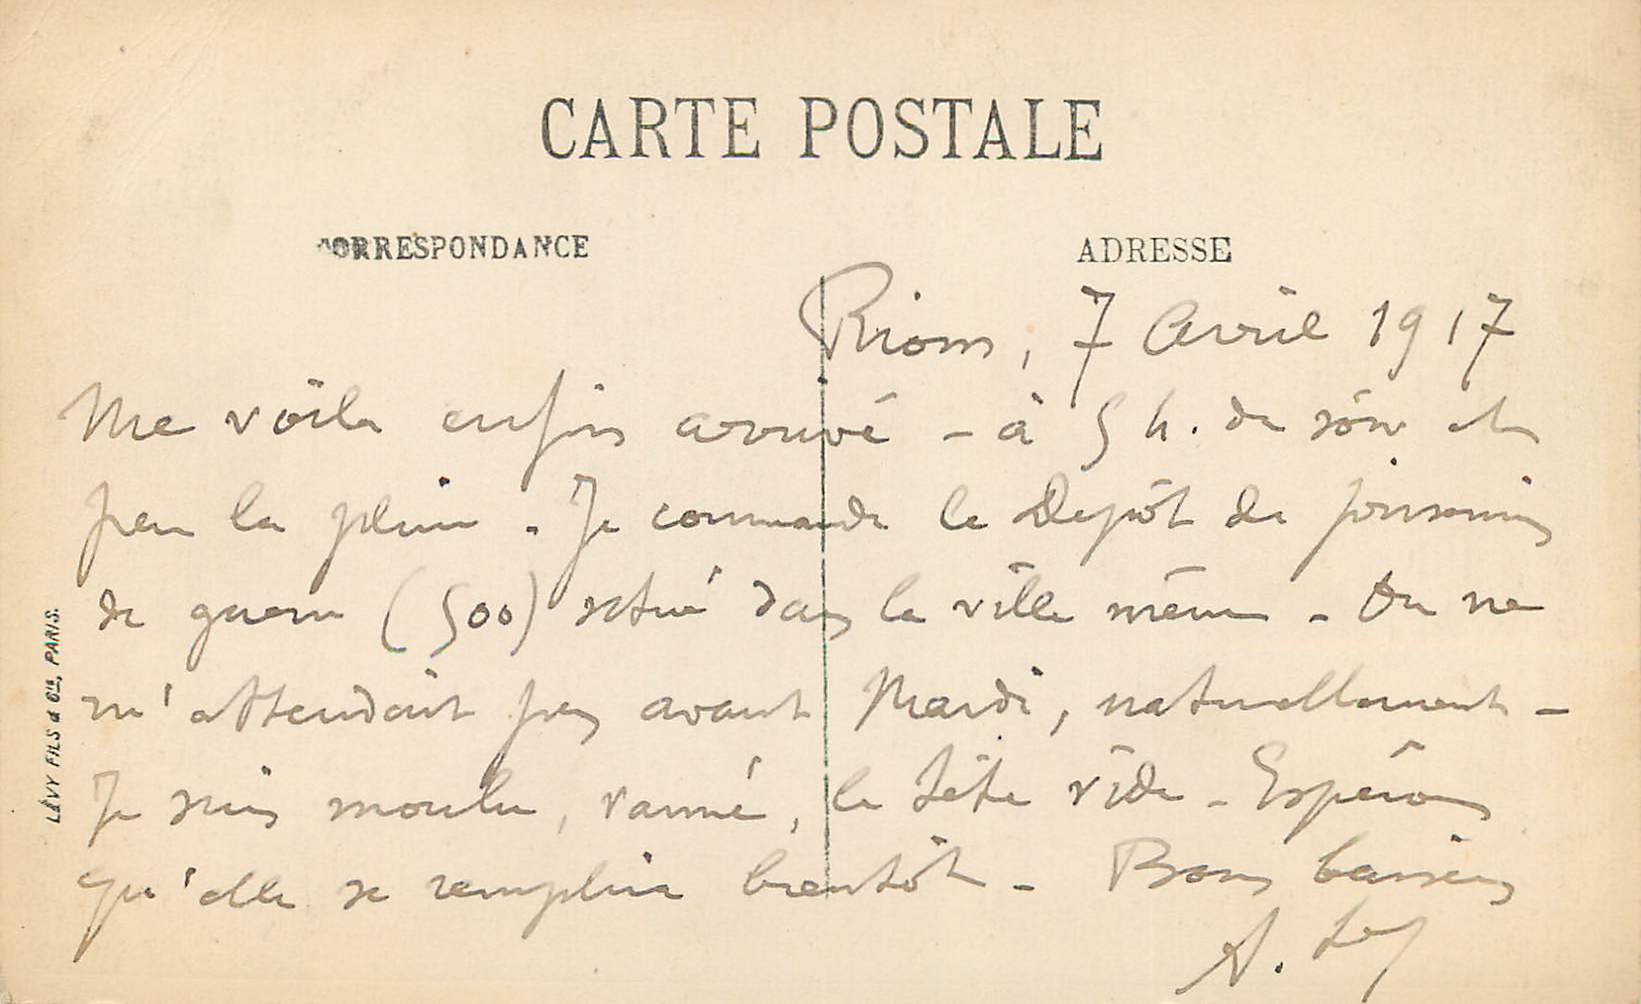 CARTE POSTALE
CORRESPONDANCE
ADRESSE
Riom, 7 Avril 1917
Me voilà enfin arrivé - à 5 h. du soir et
par la pluie. Je commande le Dépôt de prisonniers
de guerre (500) situé dans la ville même - On ne
m'attendait pas avant Mardi, naturellement -
Je suis moulu, vanné, la tête vide - Espérons
qu'elle se remplira bientôt - Bons baisers
A.
LÉVY FILS & Cie, PARIS.